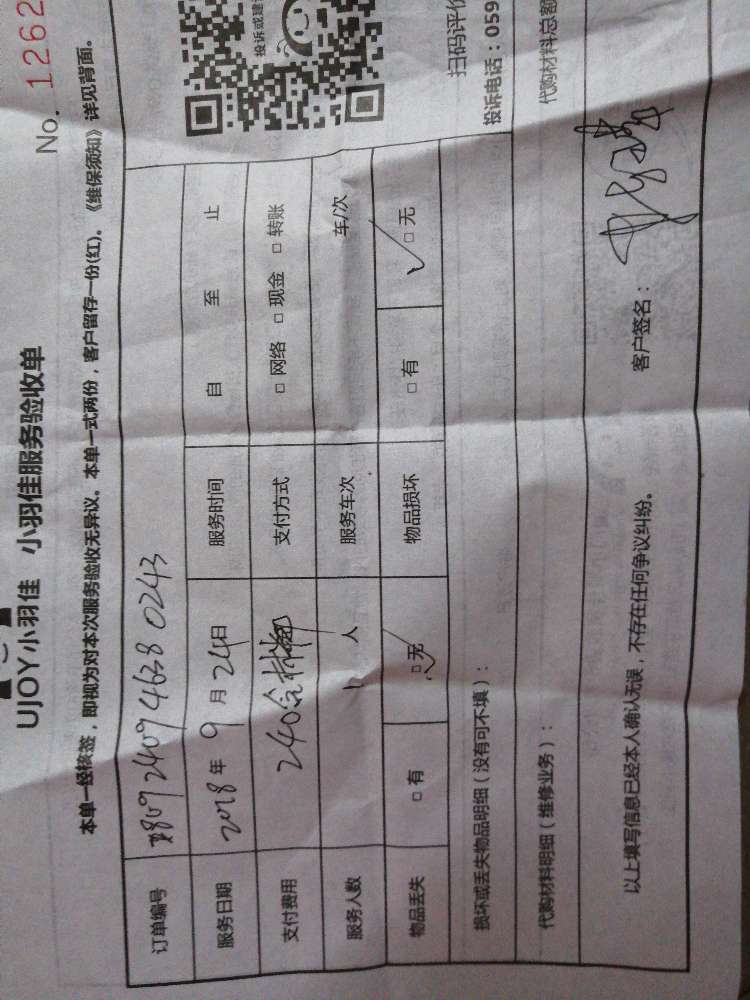 No. 1262
UJOY小羽佳 小羽佳服务验收单
本单一经核签，即视为对本次服务验收无异议。本单一式两份，客户留存一份(红)。《维保须知》详见背面。
订单编号
服务日期 2018 年 9 月 24 日 服务时间 自 至 止
支付费用 240 支付方式 □ 网络 □ 现金 □ 转账
服务人数 1 人 服务车次 车/次
物品丢失 □ 有 □ 无 物品损坏 □ 有 □ 无
损坏或丢失物品明细（没有可不填）：
代购材料明细（维修业务）：
代购材料总额
以上填写信息已经本人确认无误，不存在任何争议纠纷。
客户签名：
投诉或建
扫码评价
投诉电话：059